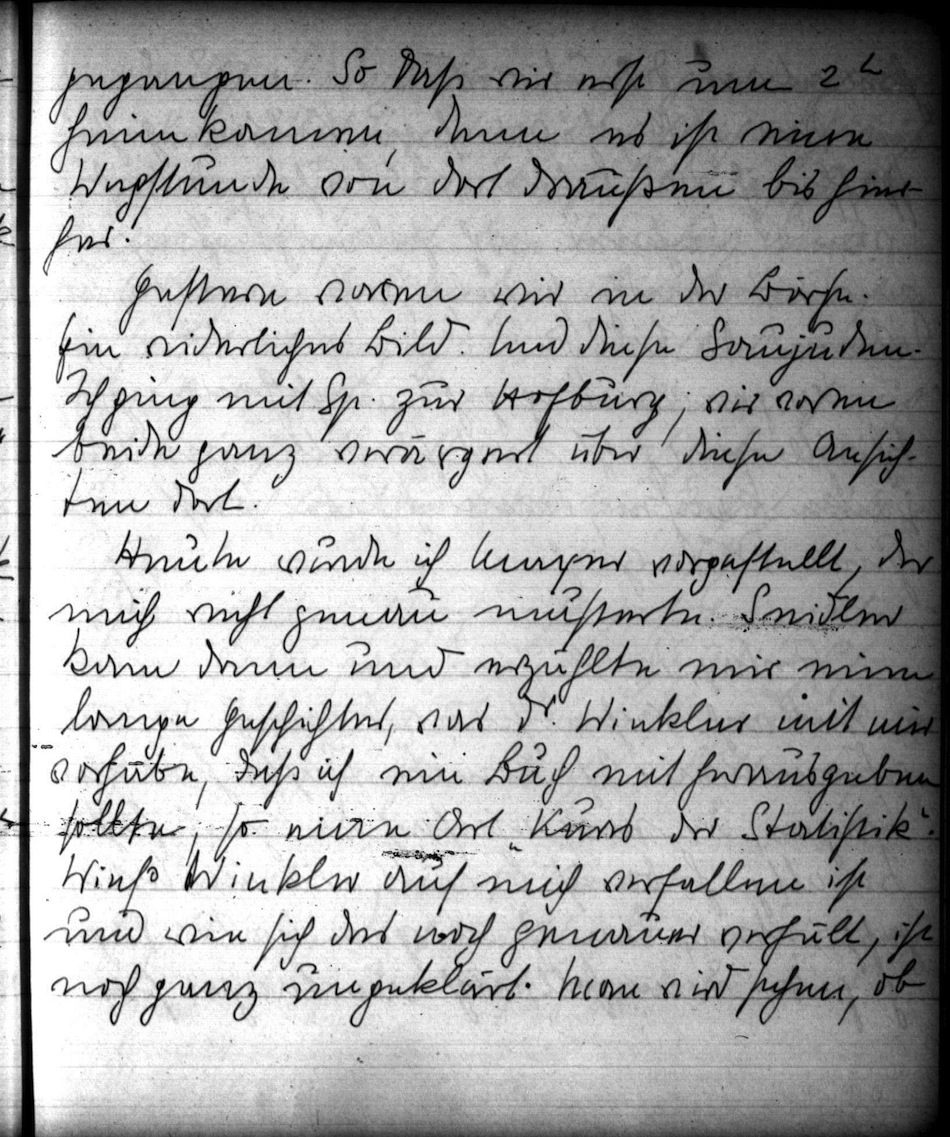 gegangen. So daß wir erst um 2 h
heimkamen, denn es ist eine
Wegstunde von dort draußen bis hier-
her.
Gestern waren wir in der Börse.
Ein widerliches Bild. Und diese Saujuden.
Ich ging mit Sp. zur Hofburg, wir waren
beide ganz verärgert über diese Ansich-
ten dort.
Heute wurde ich Mayer vorgestellt, der
mich recht genau musterte. Seidler
kam dann und erzählte mir eine
lange Geschichte, was Dr. Winkler mit mir
vorhabe, daß ich ein Buch mit herausgeben
sollte, so eine Art "Kurs der Statistik".
Wieso Winkler auf mich verfallen ist
und wie sich das noch genauer verhält, ist
noch ganz ungeklärt. Man wird sehen, ob